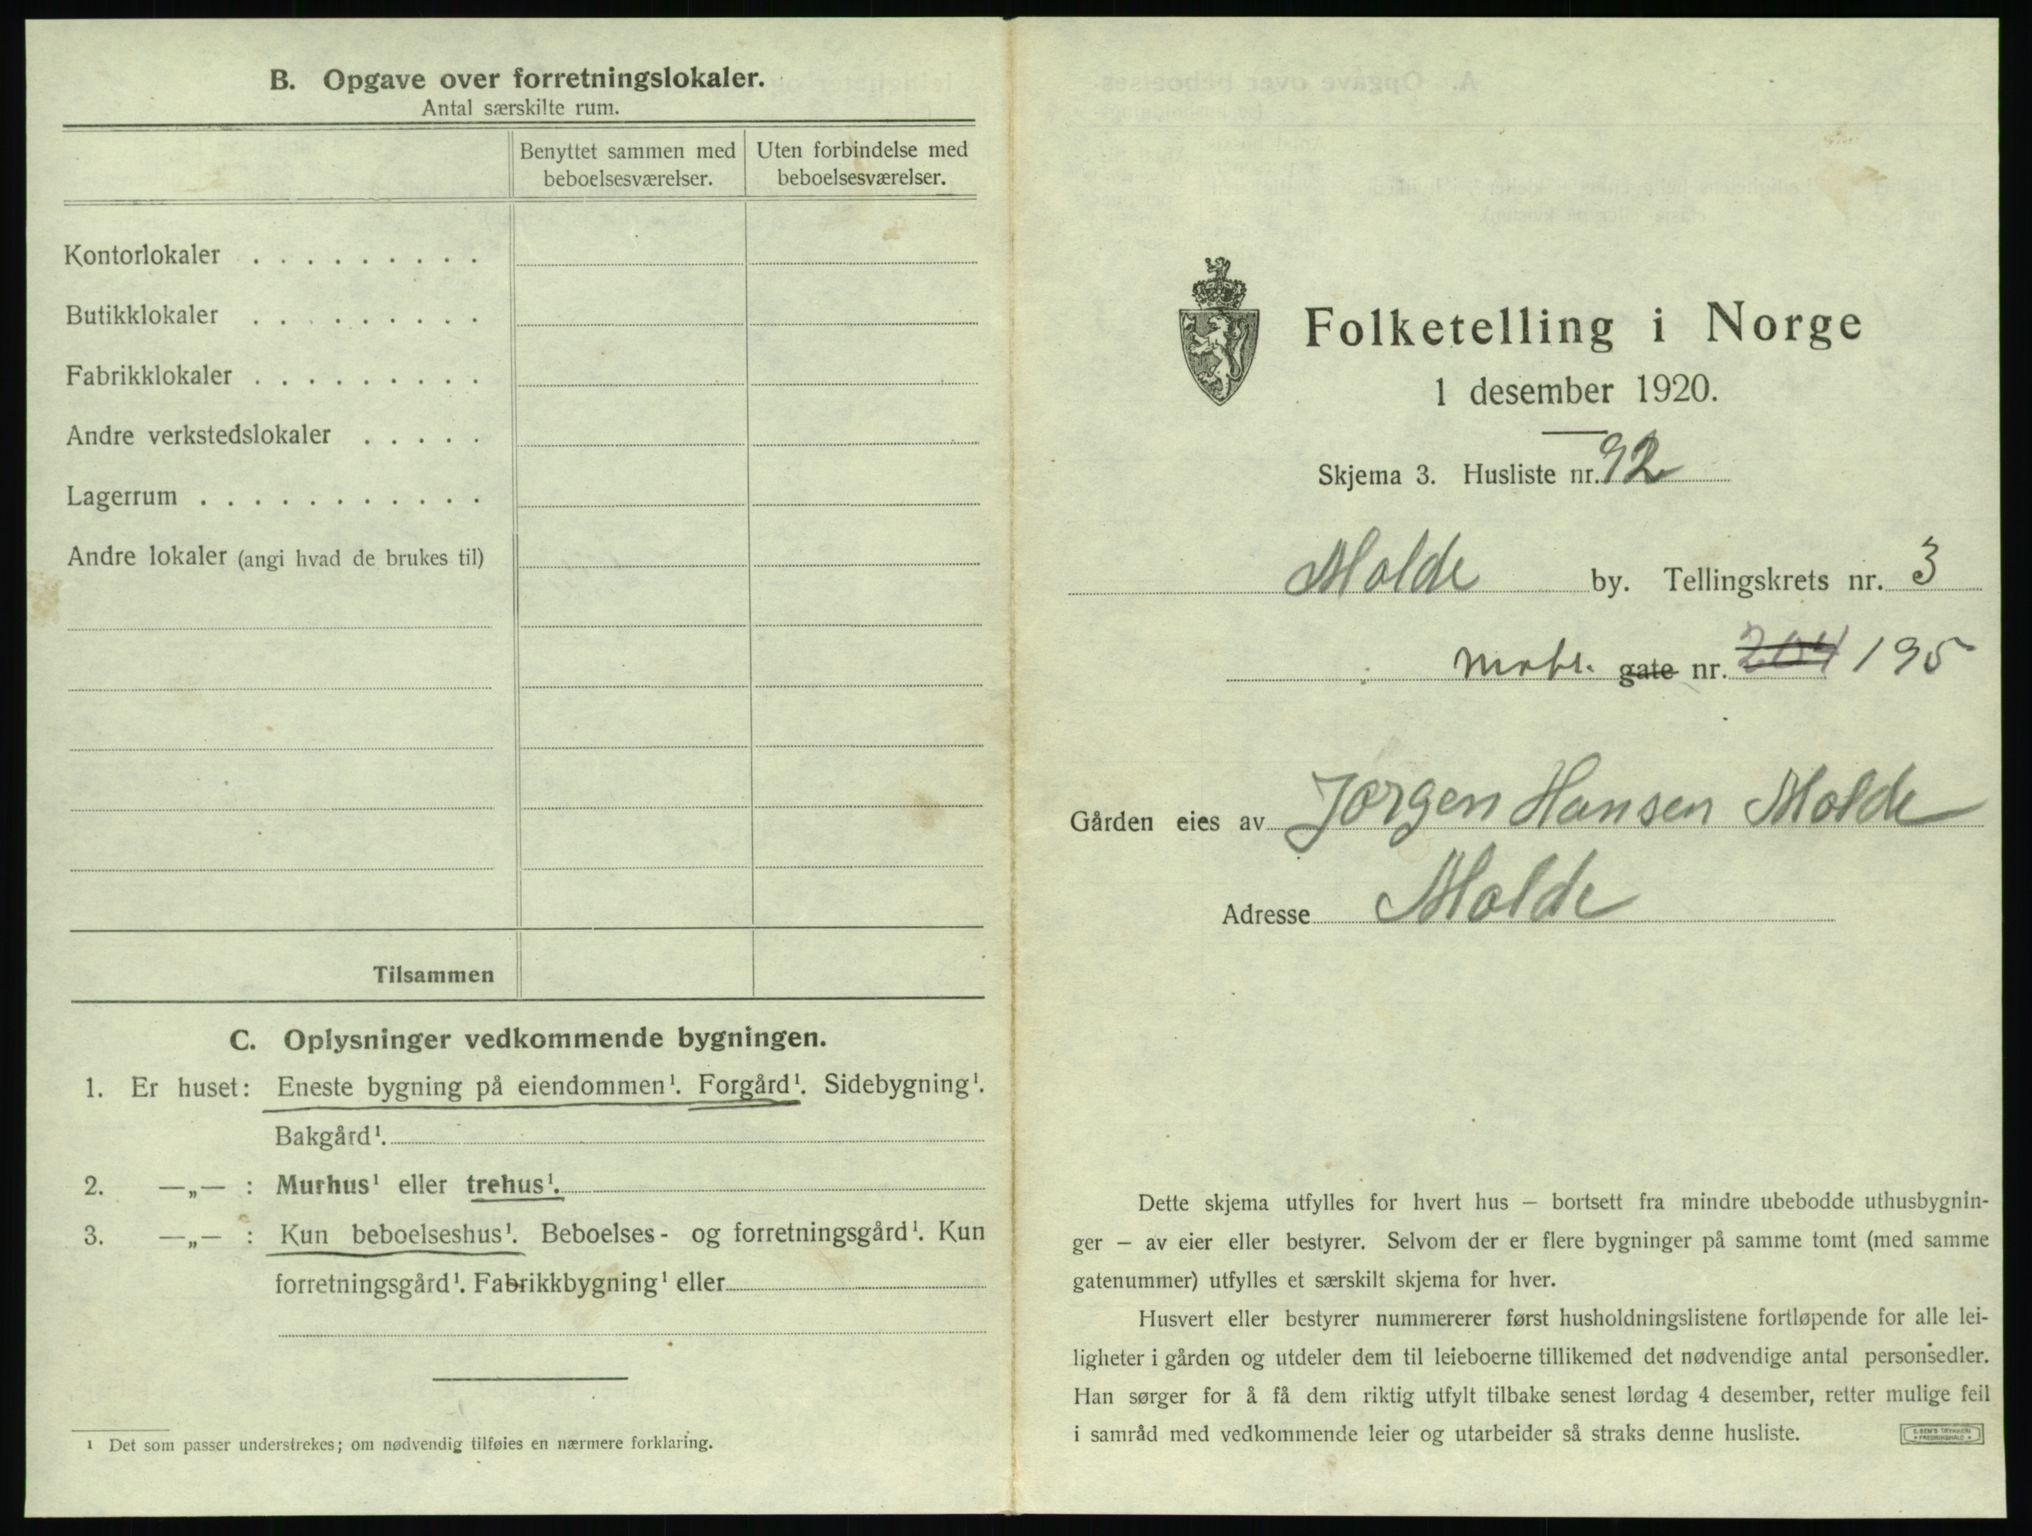 B. Opgave over forretningslokaler.
Antal særskilte rum.
Benyttet sammen med beboelsesværelser.
Uten forbindelse med beboelsesværelser.
Kontorlokaler . . . . . . . . .
Butikklokaler . . . . . . . . .
Fabrikklokaler . . . . . . . . .
Andre verkstedslokaler . . . . .
Lagerrum . . . . . . . . . . .
Andre lokaler (angi hvad de brukes til)
Tilsammen
C. Oplysninger vedkommende bygningen.
1. Er huset: Eneste bygning på eiendommen¹. Forgård¹. Sidebygning¹.
Bakgård¹.
2. —„— : Murhus¹ eller trehus¹.
3. —„— : Kun beboelseshus¹. Beboelses- og forretningsgård¹. Kun
forretningsgård¹. Fabrikkbygning¹ eller
¹ Det som passer understrekes; om nødvendig tilføies en nærmere forklaring.
Folketelling i Norge
1 desember 1920.
Skjema 3. Husliste nr. 92
Molde by. Tellingskrets nr. 3
gate nr. 204 195
Gården eies av Jørgen Hansen Molde
Adresse Molde
Dette skjema utfylles for hvert hus – bortsett fra mindre ubebodde uthusbygnin-
ger – av eier eller bestyrer. Selvom der er flere bygninger på samme tomt (med samme
gatenummer) utfylles et særskilt skjema for hver.
Husvert eller bestyrer nummererer først husholdningslistene fortløpende for alle lei-
ligheter i gården og utdeler dem til leieboerne tillikemed det nødvendige antal personsedler.
Han sørger for å få dem riktig utfylt tilbake senest lørdag 4 desember, retter mulige feil
i samråd med vedkommende leier og utarbeider så straks denne husliste.